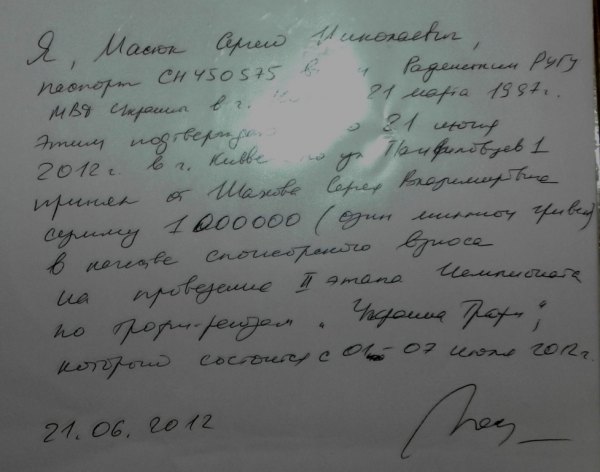 Я, Масюк Сергей Николаевич,
паспорт СН450575 Раденским РУГУ
МВД Украины в г. 21 марта 1997г.
этим подтверждаю 21 июня
2012г. в г. Киеве по ул Панфиловцев 1
принял от Шахова Сергея Владимировича
сумму 1000000 (один миллион гривен)
в качестве спонсорского взноса
на проведение II этапа Чемпионата
по трофи-рейдам "Украина Трофи",
которого состоится с 01-07 июля 2012г.
21.06.2012